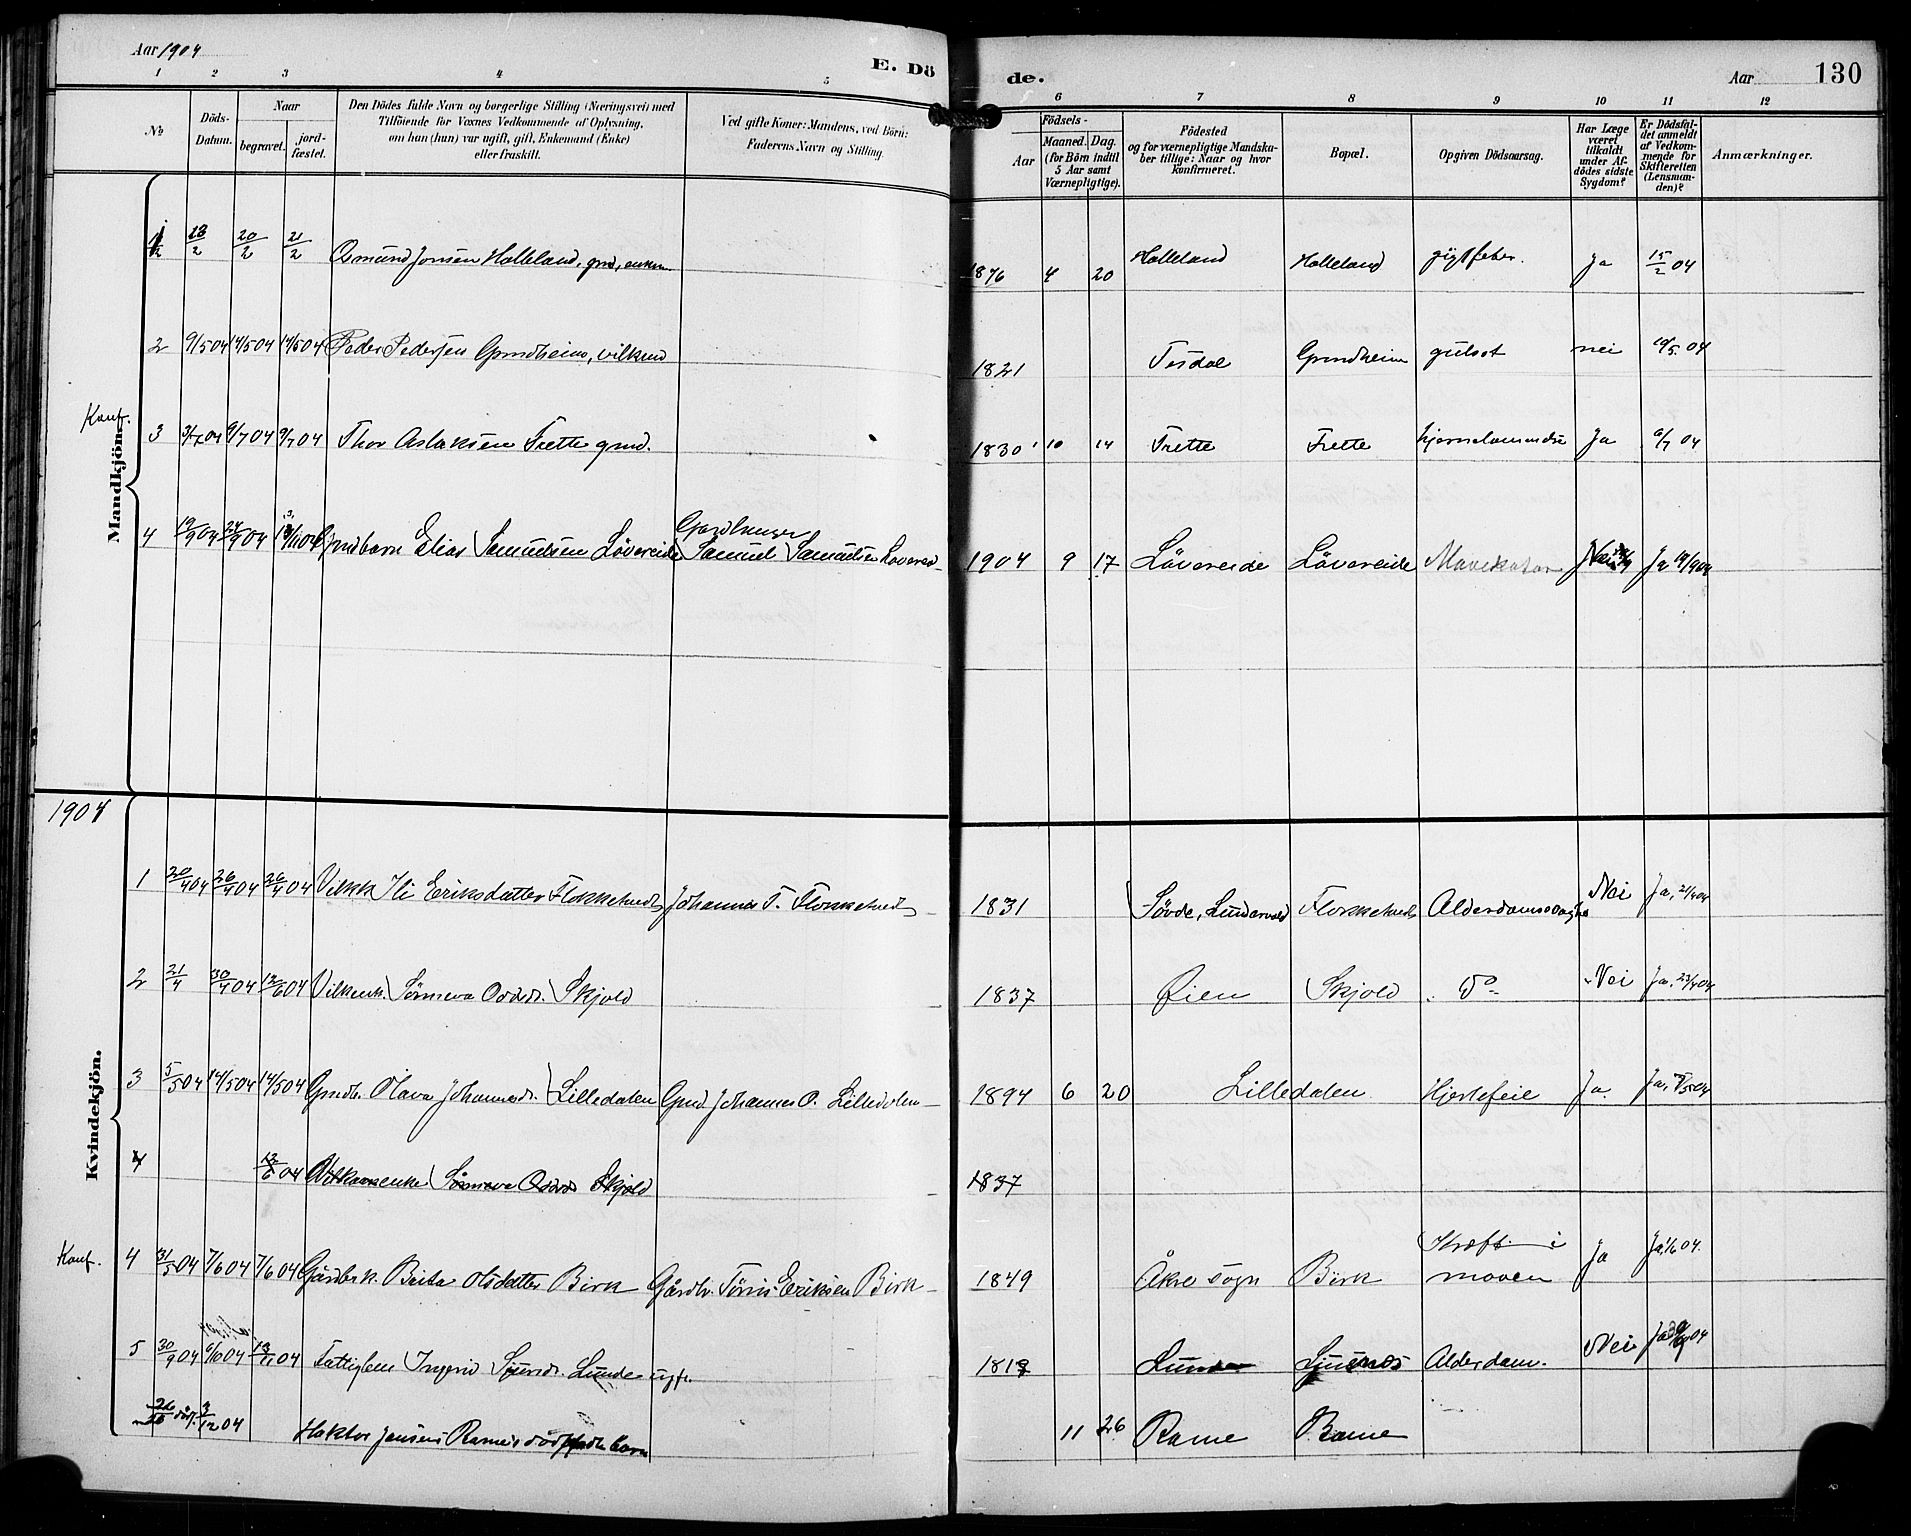 Aar 1904
E. Dö
de.
Aar
130
1 2 3 4 5
6 7 8 9 10 11 12
No
Döds-
Datum.
Naar
begravet.
jord-
fæstet.
Den Dödes fulde Navn og borgerlige Stilling (Næringsvei) med
Tilföiende for Voxnes Vedkommende af Oplysning,
om han (hun) var ugift, gift, Enkemand (Enke)
eller fraskilt.
Ved gifte Koner: Mandens, ved Börn:
Faderens Navn og Stilling.
Födsels-
Aar
Maaned.
Dag.
(for Börn indtil
5 Aar samt
Værnepligtige).
Födested
og for værnepligtige Mandska-
ber tillige: Naar og hvor
konfirmeret.
Bopæl.
Opgiven Dödsaarsag.
Har Læge
været
tilkaldt
under Af-
dödes sidste
Sygdom?
Er Dödsfal-
det anmeldt
af Vedkom-
mende for
Skifteretten
(Lensman-
den)?
Anmærkninger.
Mandkjön.
20/2 21/2 Osmund Jonsen Halleland, gmd, 1876 4 20 Halleland Halleland gigtfeber. Ja 15/2 04
2 9/5 04 14/5 04 14/5 04 Peder Pedersen Grindheim, vilkmd 1821 Tesdal Grindheim gulsot nei 10/5 04
Konf.
3 3/7 04 9/7 04 9/7 04 Thor Aslaksen Frette gmd. 1830 10 14 Frette Frette Ja 6/7 04
Gardbruger
4 19/9 04 24/9 04 Gmdbarn Elias Samuelsen Løvereide Samuel Samuelsen 1904 9 17 Løvereide Løvereide Mavekatar Nei Ja 19/9 04
1904
Kvindekjön.
1 20/4 04 26/4 04 26/4 04 Vilkk Ili Eriksdatter Flokketvedt Johannes T. Flokketvedt 1831 Søvde, Flokketvedt Nei Ja, 21/4 04
2 21/4 30/4 04 12/6 04 Vilkenk. Sørneva Oddsdr. Skjold 1837 Øien Skjold Do Nei Ja, 23/4 04
3 5/5 04 14/5 04 14/5 04 Gmdb. Olava Johannesdr. Lilledalen Gmd. Johannes O. Lilledalen 1894 6 20 Lilledalen Hjertefeil Ja. Ja,
4 12/6 04 Vilkaarsenke Sørneva Oddsdr Skjold 1837
Kræft i
Konf. 4 31/5 04 7/6 04 7/6 04 Gårdbrk. Brita Olsdatter Birk Gårdbr. Tørris Eriksen Birk 1849 Åkre sogn Birk maven Ja Ja 1/6 04.
5 30/9 04 6/10 04 04 Fattiglem Ingerid Sjursdr. Lunde ugft. Lunde Alderdom. Nei Ja
3/12 04 Jensens Rames dødfødte barn 11 26 Rame Rame